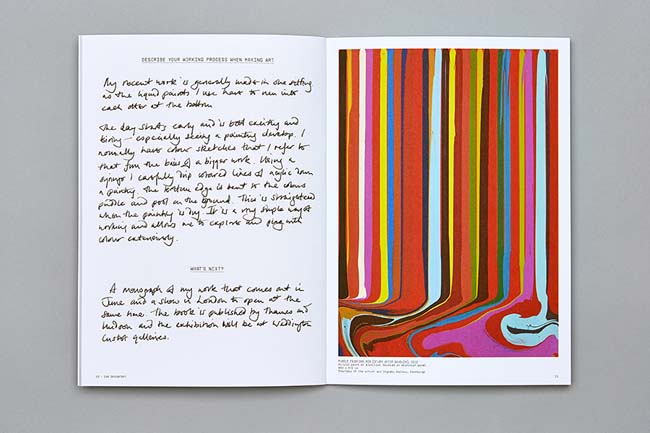 DESCRIBE YOUR WORKING PROCESS WHEN MAKING ART
My recent work is generally made in one sitting
as the liquid paints I use have to run into
each other at the bottom.
The day starts early and is both exciting and
tiring - especially seeing a painting develop. I
normally have colour sketches that I refer to
that form the basis of a bigger work. Using a
syringe I carefully drip coloured lines of acrylic down
a painting. The bottom edge is bent so the colours
puddle and pool on the ground. This is straightened
when the painting is dry. It is a very simple way of
working and allows me to explore and play with
colour extensively.
WHAT'S NEXT?
A monograph of my work that comes out in
June and a show in London to open at the
same time. The book is published by Thames and
Hudson and the exhibition will be at Waddington
Custot galleries.
IAN DAVENPORT
PUDDLE PAINTING: RED (STUDY AFTER 
Acrylic paint on aluminium mounted on aluminium panel
Courtesy of the artist and Ingleby Gallery, Edinburgh